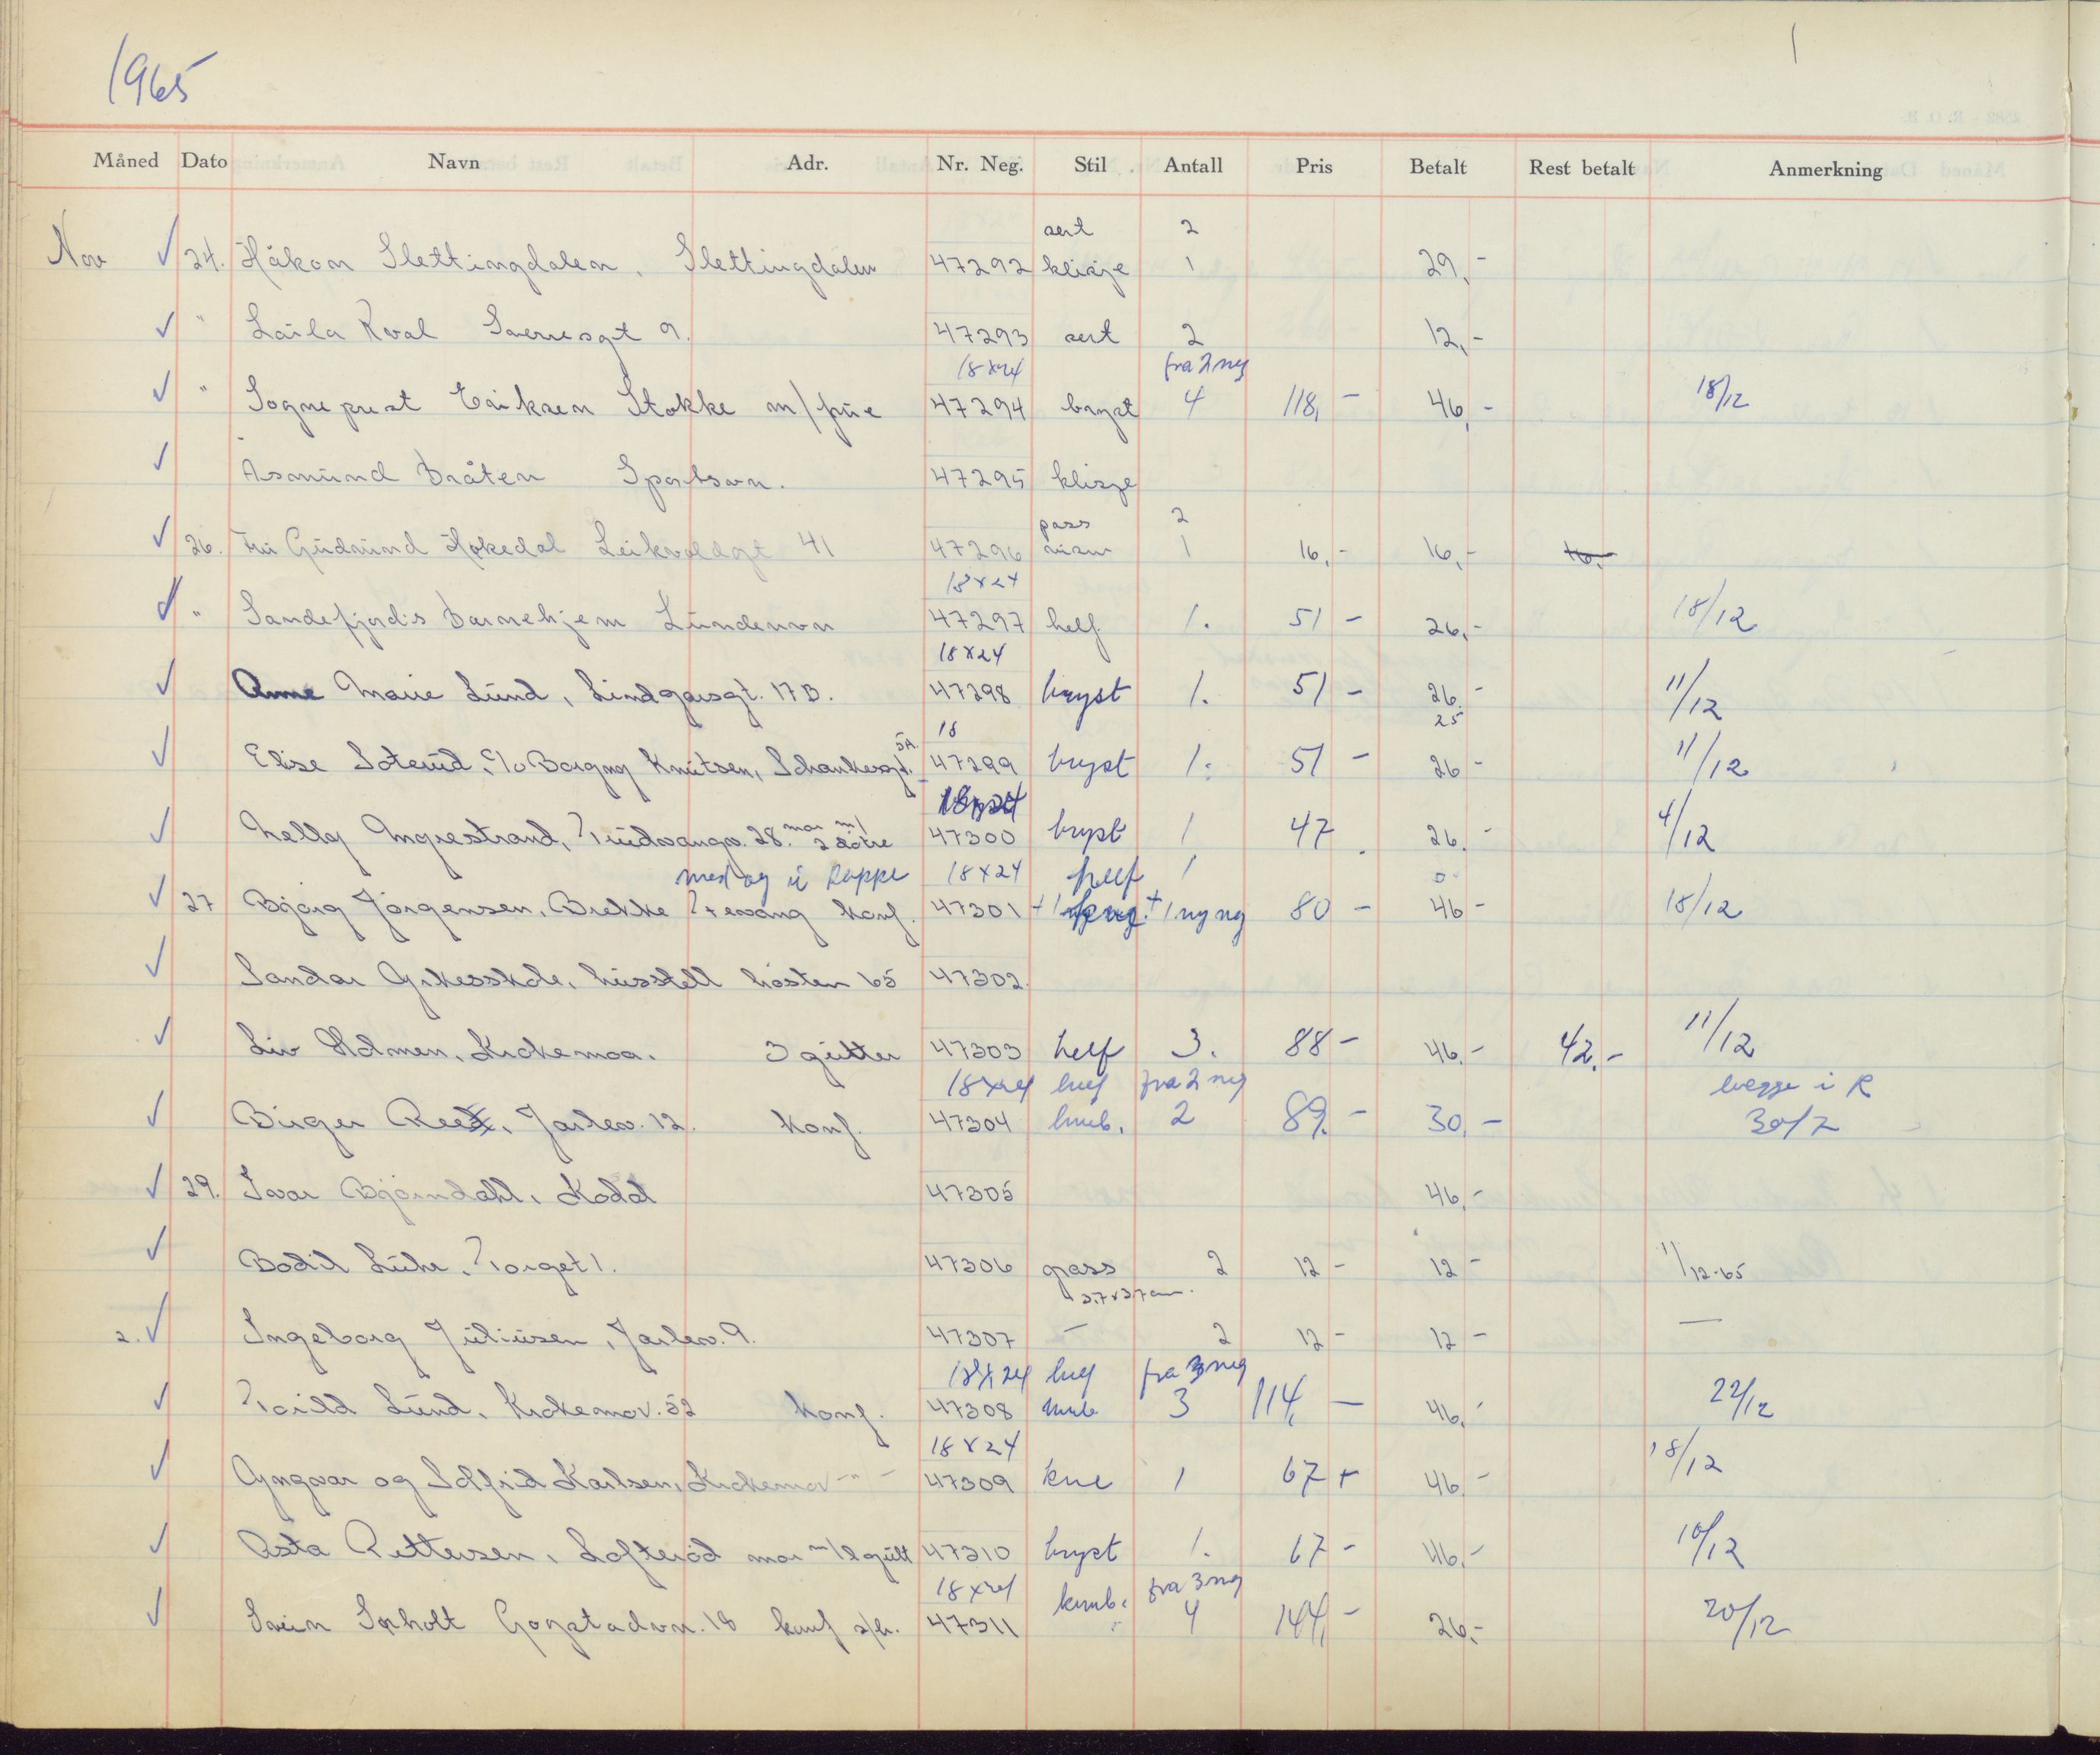 1965
1
Måned Dato Navn Adr. Nr. Neg. Stil Antall Pris Betalt Rest betalt Anmerkning
sert 2
Nov ✓ 24. Håkon Slettingdalen, Slettingdalen 47292 klisje 1 29,-
✓ " Laila Kval Sverresgt 9. 47293 sert 2 12,-
18x24 fra 2 neg
✓ " Sogneprest Eriksen Stokke m/frue 47294 bryst 4 118,- 46,- 18/12
✓ Asmund Bråten 47295 klisje
pass 2
✓ 26. Fru Gudrund Hokedal 41 47296 1 16,- 16,- 16,-
18x24
✓ " Sandefjords Barnehjem Lundenvn 47297 helf 1. 51 - 26,- 18/12
18x24
✓ Anne Marie Lund, Lindgårsgt. 17B. 47298 bryst 1. 51 - 26,- 11/12
5A. 18 25
✓ Elise Soterud, c/o Borgny Knutsen, 47299 bryst 1. 51 - 26 - 11/12
18x24
mor m/
✓ Nelly 28. 2 døtre 47300 bryst 1 47 26,- 4/12
med og i kappe 18x24 helf 1 0
✓ 27 Bjørg Jørgensen, Brekke Tresvang konf. 47301 + 1 + 1 ny neg 80 - 46 - 18/12
✓ Sandar Yrkesskole, husstell høsten 65 47302.
✓ Liv Holmen, Krokemoa. 3 gutter 47303 helf 3. 88 - 46,- 42,- 11/12
18x24 helf fra 2 neg begge i R
✓ Birger Reex, Jarlsv. 12. Konf. 47304 kneb. 2 89,- 30,- 30/7
✓ 29. Ivar Bjørndahl, Kodal 47305 46,-
✓ Bodil Lühr, Torget 1. 47306 pass 2 12 - 12 - 11/12-65
37x37 cm.
2. ✓ Ingeborg Juliusen, Jarlsv. 9. 47307 — 2 12 - 12 - —
18x24 helf fra 3 neg
✓ Toril Lund, Krokemov. 52 Konf. 47308 3 114,- 46,- 22/12
18x24
✓ Yngvar og Solfrid Karlsen, Krokemov -"- 47309 kne 1 67 + 46,- 18/12
✓ Asta Pettersen, Lofterød mor m/2 gutt 47310 bryst 1. 67 - 46,- 10/12
18x24 kneb. fra 3 neg
✓ Svein Sørholt Gogstadvn. 18 konf s/h. 47311 4 144,- 26,- 20/12